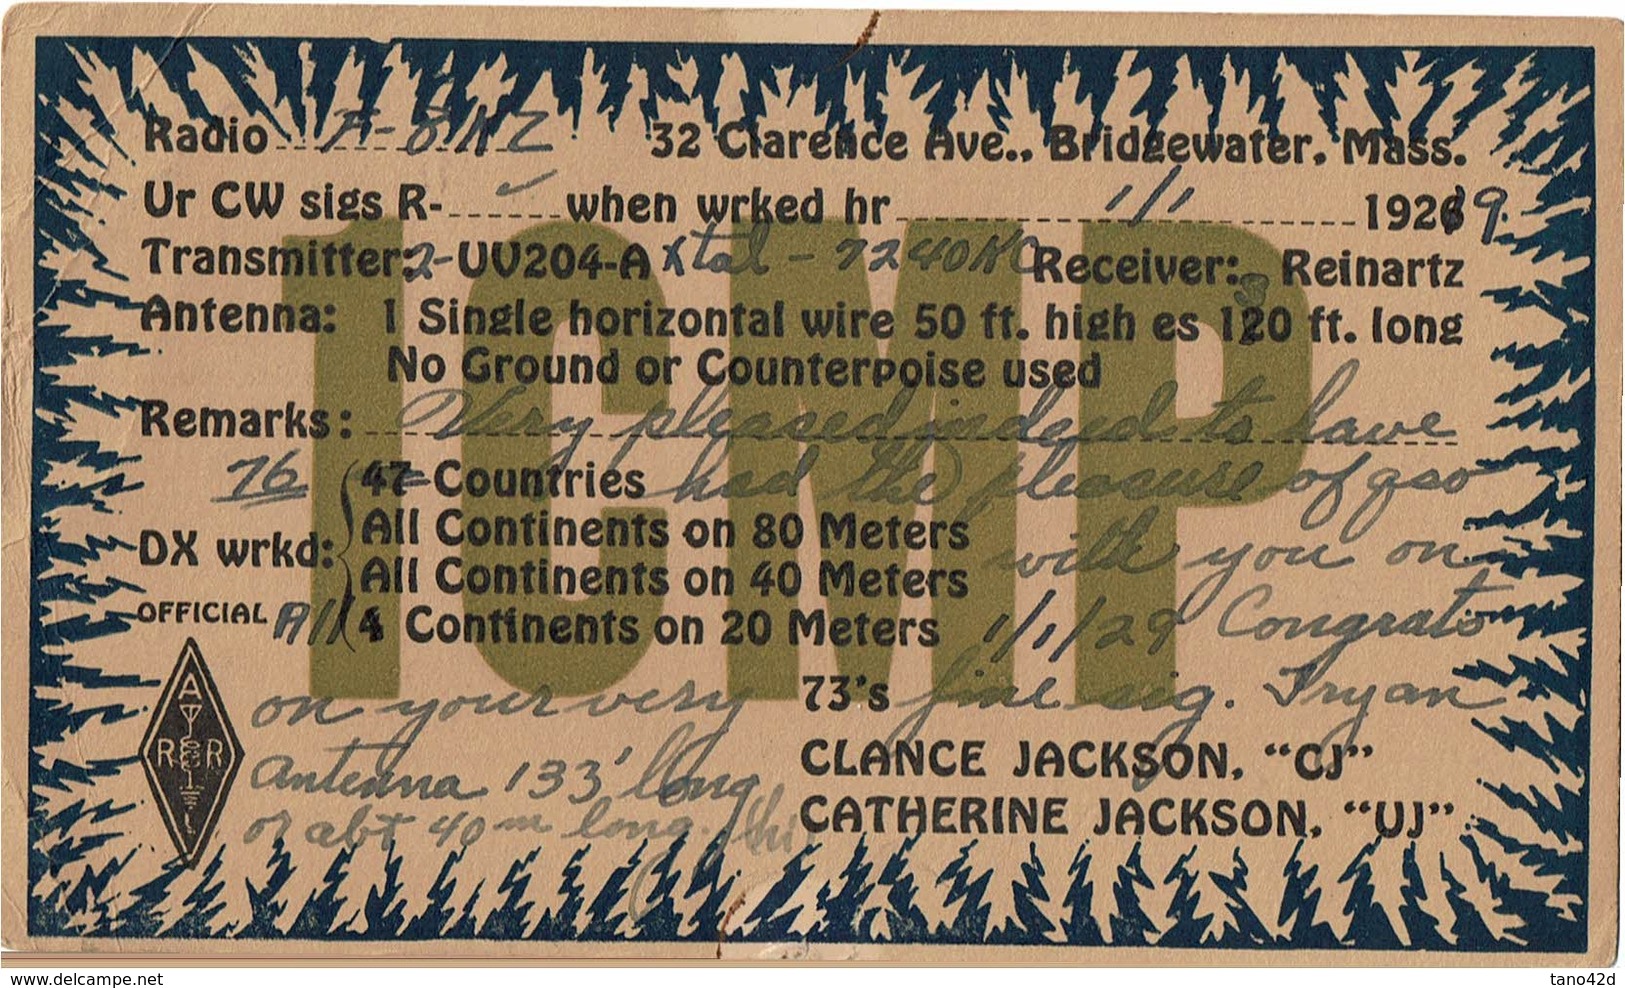 1CMP
Radio F-8KZ 32 Clarence Ave., Bridgewater, Mass.
Ur CW sigs R- ✓ when wrked hr 1/1 1929.
Transmitter: 2-UV204-A Xtal - 7240KC Receiver: Reinartz
Antenna: 1 Single horizontal wire 50 ft. high es 130 ft. long
No Ground or Counterpoise used
Remarks: Very pleased indeed to have
76 47 Countries had the pleasure of qso
DX wrkd: All Continents on 80 Meters with you on
All Continents on 40 Meters
OFFICIAL All 4 Continents on 20 Meters 1/1/29 Congrats
on your very 73's fine sig. Try an
A R R L
Antenna 133' long CLANCE JACKSON, "CJ"
or abt 40m long. CATHERINE JACKSON, "UJ"
www.delcampe.net tano42d